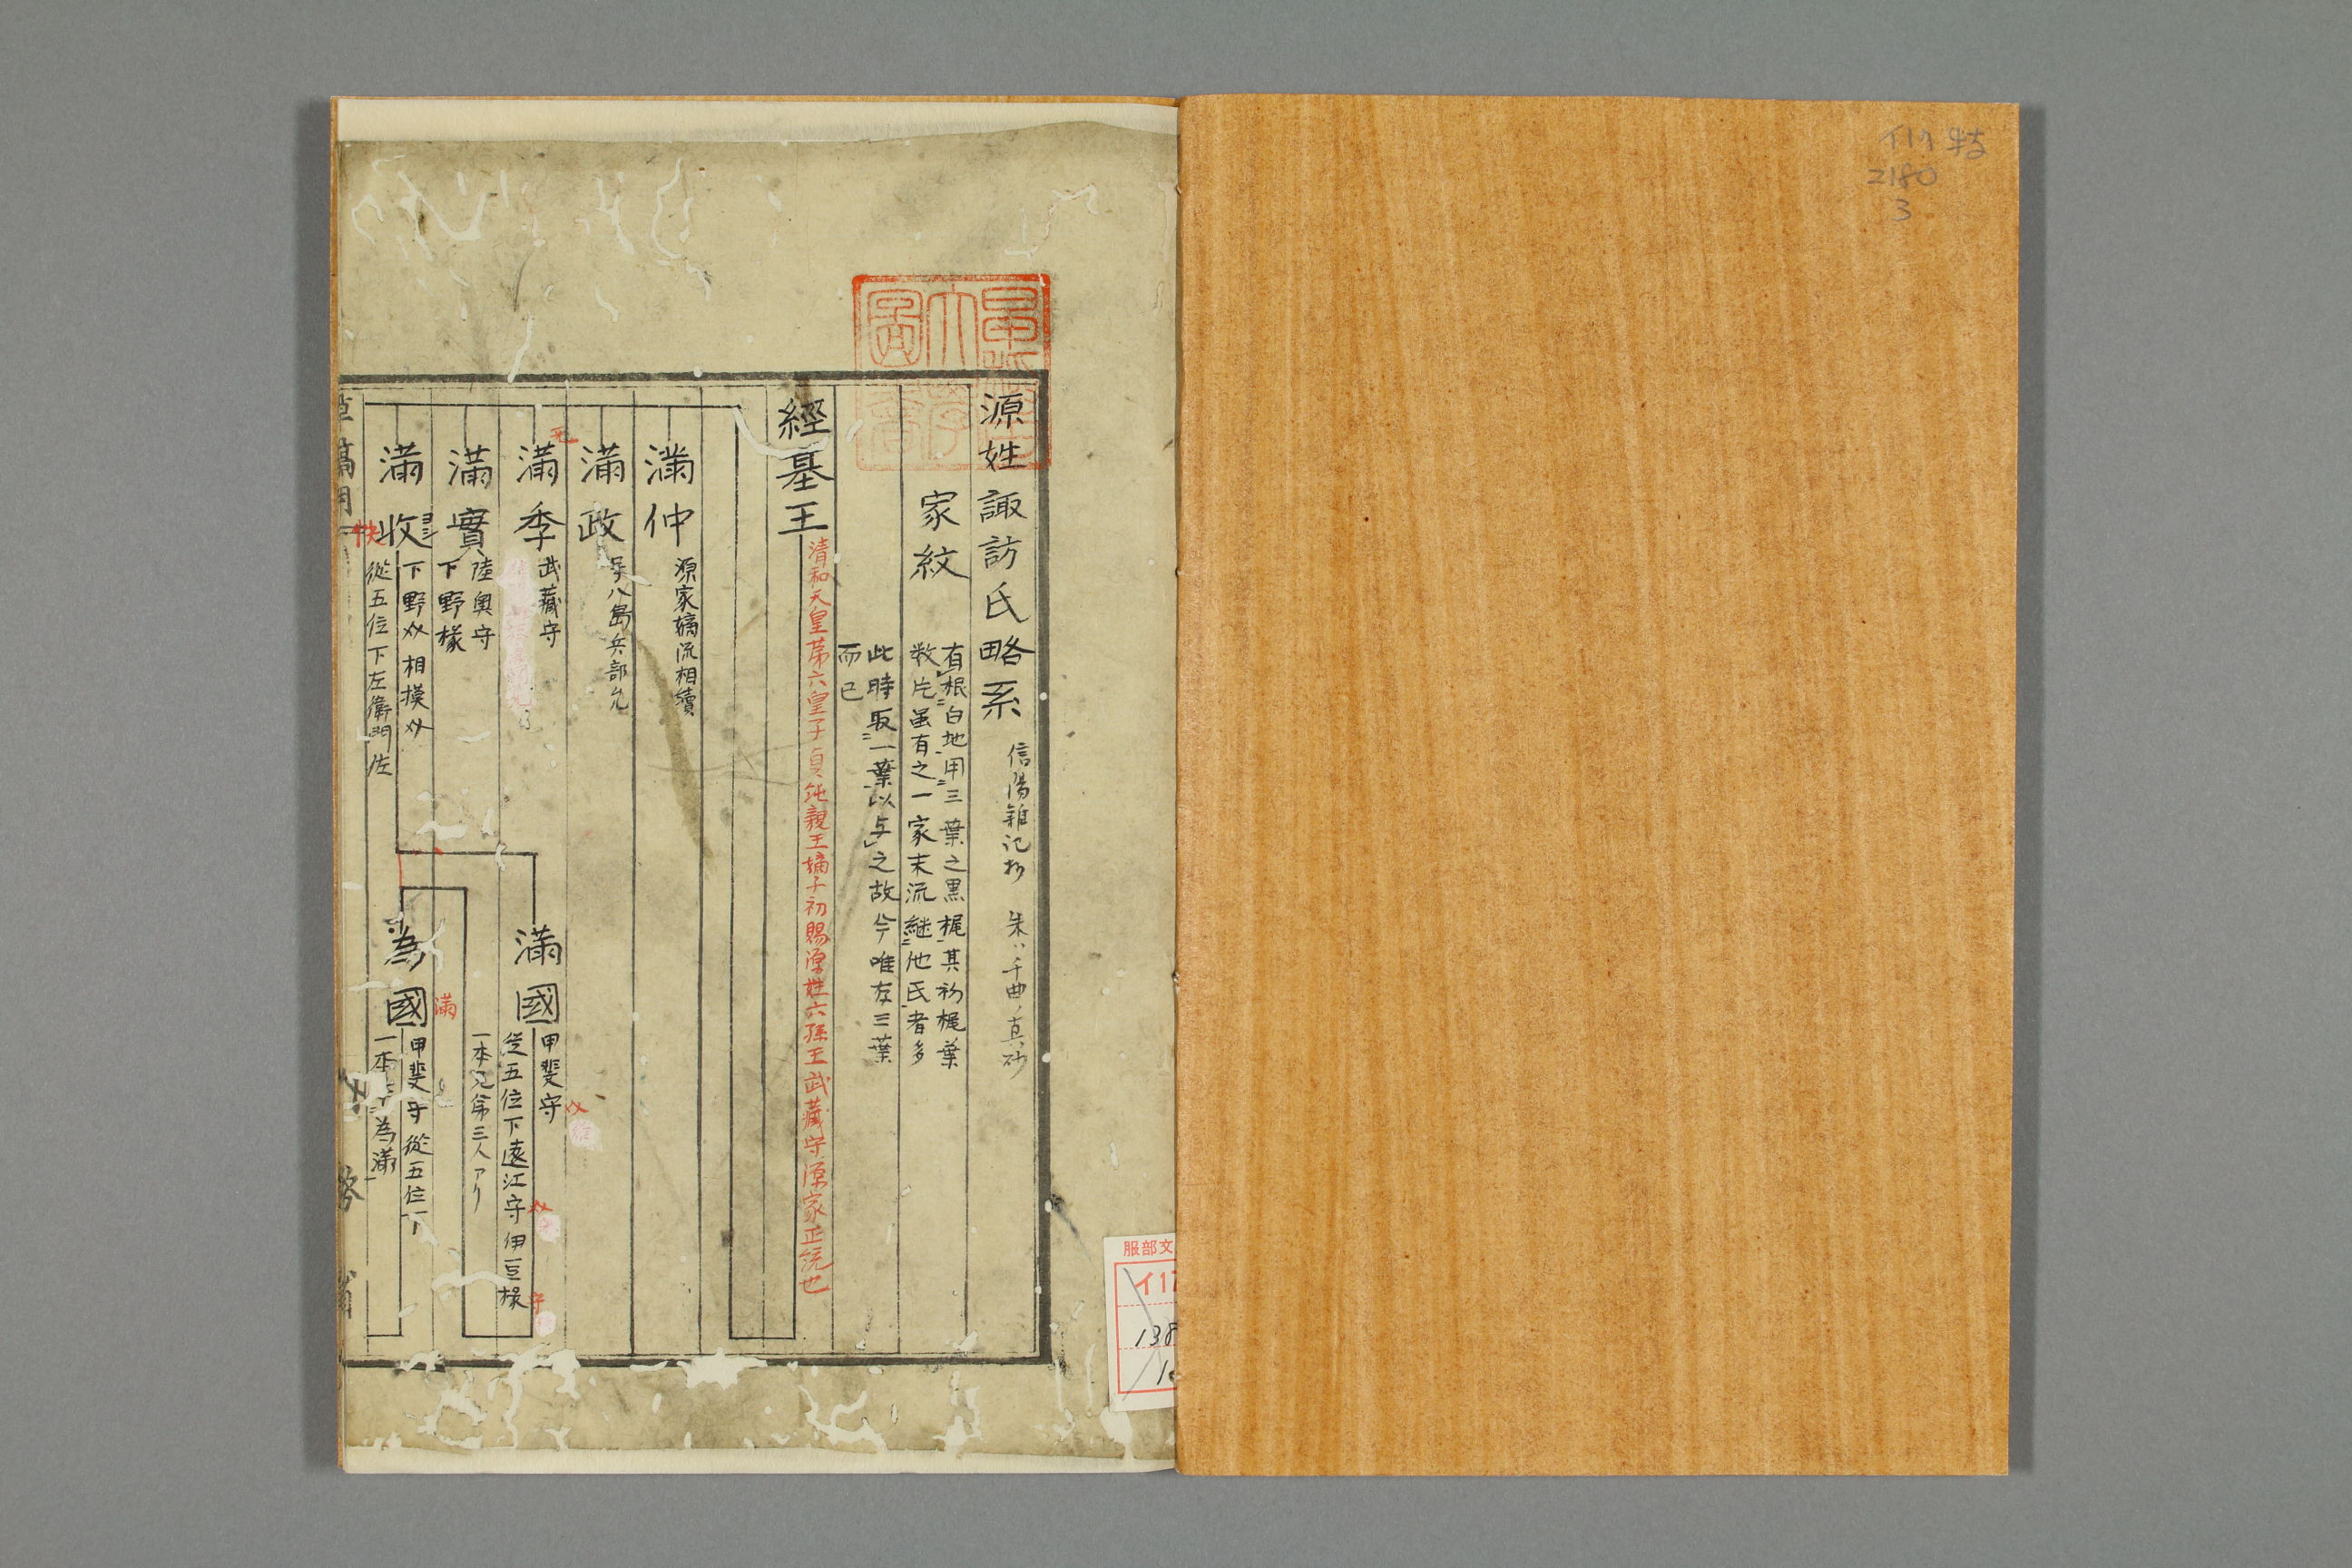 イ17 特
2180
3
源姓諏訪氏略系
信陽雑記抄 朱ハ千曲ノ真砂
家紋
有根白地用三葉之黒梶其初梶葉
数片虽有之一家末流継他氏者多
此時取一葉以与之故今唯存三葉
而已
經基王
清和天皇第六皇子貞純親王嫡子初賜源姓六孫王武藏守源家正統也
滿仲
源家嫡流相續
滿政
号八島兵部允
元
滿季
武藏守
滿實
陸奥守
下野椽
滿收
快
下野 相模
從五位下左衛門佐
滿國
甲斐守
從五位下遠江守伊豆椽
守
一本兄弟三人アリ
為國
滿
甲斐守從五位下
一本 為滿
服部文
イ17
138